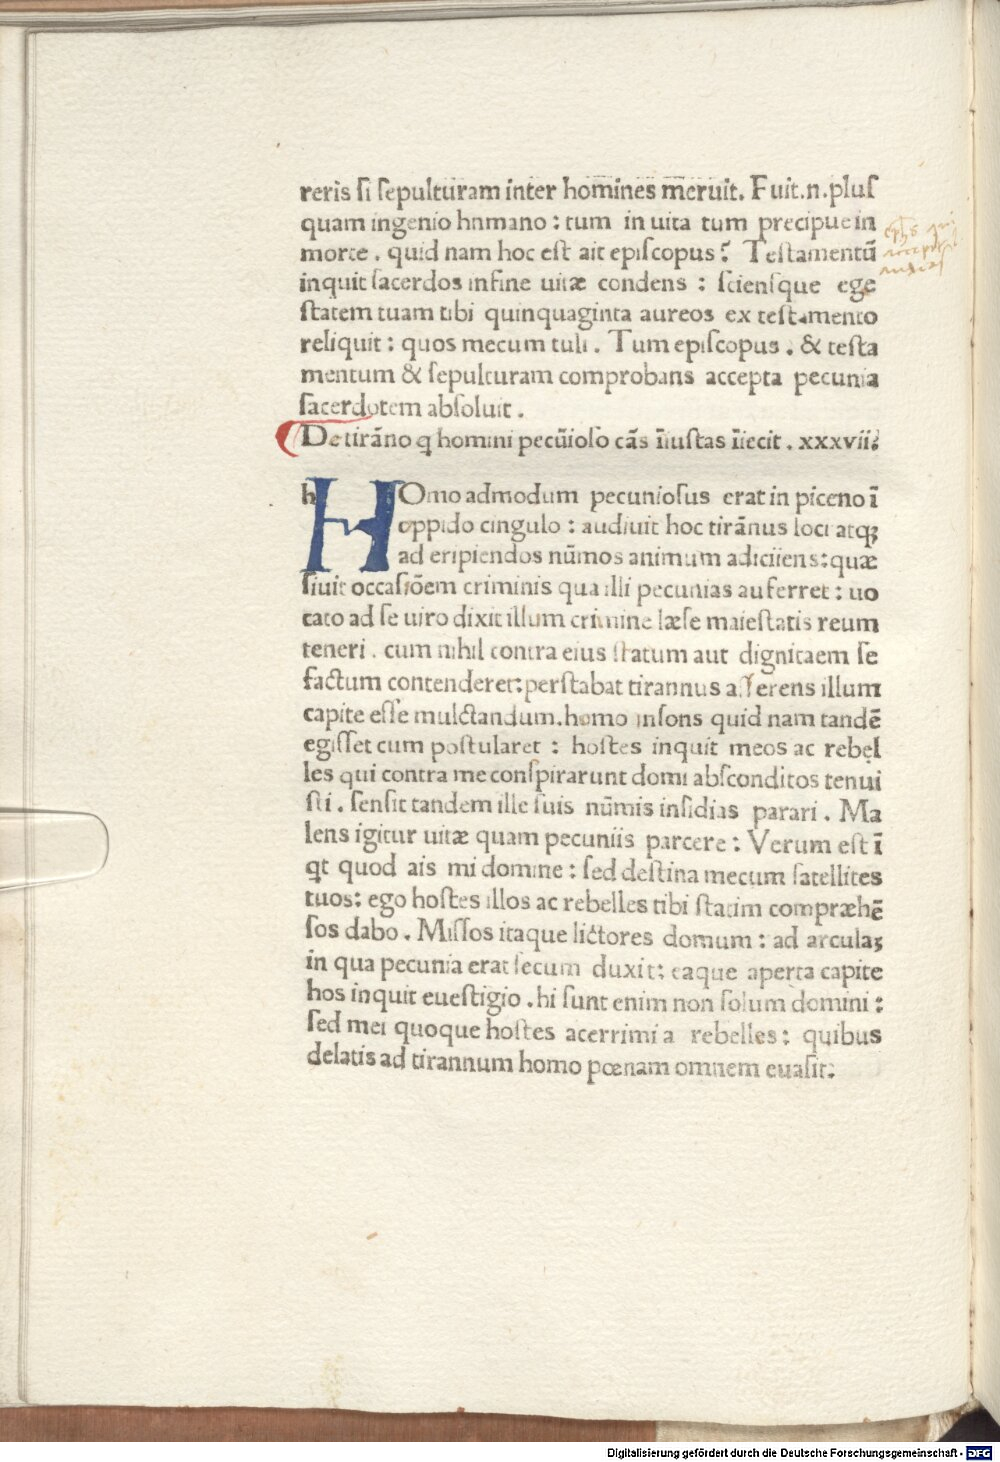 reris si sepulturam inter homines meruit. Fuit.n.plus
quam ingenio hnmano : tum in uita tum precipue in
morte . quid nam hoc est ait episcopus ? Testamentū
inquit sacerdos in fine uitæ condens : sciensque ege
statem tuam tibi quinquaginta aureos ex testamento
reliquit : quos mecum tuli . Tum episcopus . & testa
mentum & sepulturam comprobans accepta pecunia
sacerdotem absoluit .
De tirāno q homini pecūioso cās īiustas īiecit . xxxvii.
h HOmo admodum pecuniosus erat in piceno ī
oppido cingulo : audiuit hoc tirānus loci atqꝫ
ad eripiendos nūmos animum adiciiens : quæ
siuit occasiōem criminis qua illi pecunias auferret : uo
cato ad se uiro dixit illum crimine læse maiestatis reum
teneri . cum nihil contra eius statum aut dignitaem se
factum contenderet : perstabat tirannus asserens illum
capite esse mulctandum . homo insons quid nam tandē
egisset cum postularet : hostes inquit meos ac rebel
les qui contra me conspirarunt domi absconditos tenui
sti . sensit tandem ille suis nūmis insidias parari . Ma
lens igitur uitæ quam pecuniis parcere : Verum est ī
qt quod ais mi domine : sed destina mecum satellites
tuos : ego hostes illos ac rebelles tibi statim compræhē
sos dabo . Missos itaque lictores domum : ad arculaꝫ
in qua pecunia erat secum duxit : eaque aperta capite
hos inquit euestigio . hi sunt enim non solum domini :
sed mei quoque hostes acerrimi a rebelles : quibus
delatis ad tirannum homo pœnam omnem euasit :
Digitalisierung gefördert durch die Deutsche Forschungsgemeinschaft - DFG